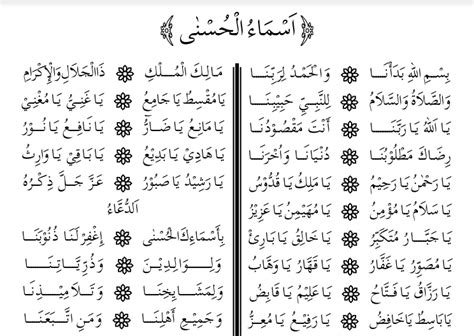 اَسْمَاءُ الْحُسْنٰى
بِسْمِ اللهِ بَدَأْنَا وَالْحَمْدُ لِرَبِّنَا
وَالصَّلَاةُ وَالسَّلَامُ لِلنَّبِيِّ حَبِيْبِنَا
يَا اَللهُ يَا رَبَّنَا أَنْتَ مَقْصُوْدُنَا
رِضَاكَ مَطْلُوْبُنَا دُنْيَانَا وَاُخْرَنَا
يَا رَحْمٰنُ يَا رَحِيْمُ يَا مَلِكُ يَا قُدُّوْسُ
يَا سَلَامُ يَا مُؤْمِنُ يَا مُهَيْمِنُ يَا عَزِيْزُ
يَا جَبَّارُ مُتَكَبِّرُ يَا خَالِقُ يَا بَارِئُ
يَا مُصَوِّرُ يَا غَفَّارُ يَا قَهَّارُ يَا وَهَّابُ
يَا رَزَّاقُ يَا فَتَّاحُ يَا عَلِيْمُ يَا قَابِضُ
يَا بَاسِطُ يَا خَافِضُ يَا رَفِيْعُ يَا مُعِزُّ
مَالِكَ الْمُلْكِ ذَاالْجَلَالِ وَالْاِكْرَامِ
يَا مُقْسِطُ يَا جَامِعُ يَا غَنِيُّ يَا مُغْنِيْ
يَا مَانِعُ يَا ضَارُّ يَا نَافِعُ يَا نُوْرُ
يَا هَادِيْ يَا بَدِيْعُ يَا بَاقِيْ يَا وَارِثُ
يَا رَشِيْدُ يَا صَبُوْرُ عَزَّ جَلَّ ذِكْرُهُ
اَلدُّعَاءُ
بِأَسْمَاءِكَ الْحُسْنٰى اِغْفِرْ لَنَا ذُنُوْبَنَا
وَلِوَالِدِيْنَا وَذُرِّيَّاتِنَا
وَلِمَشَايِخِنَا وَتَلَامِيْذِنَا
وَجَمِيْعِ أَهْلِنَا وَمَنِ اتَّبَعَنَا